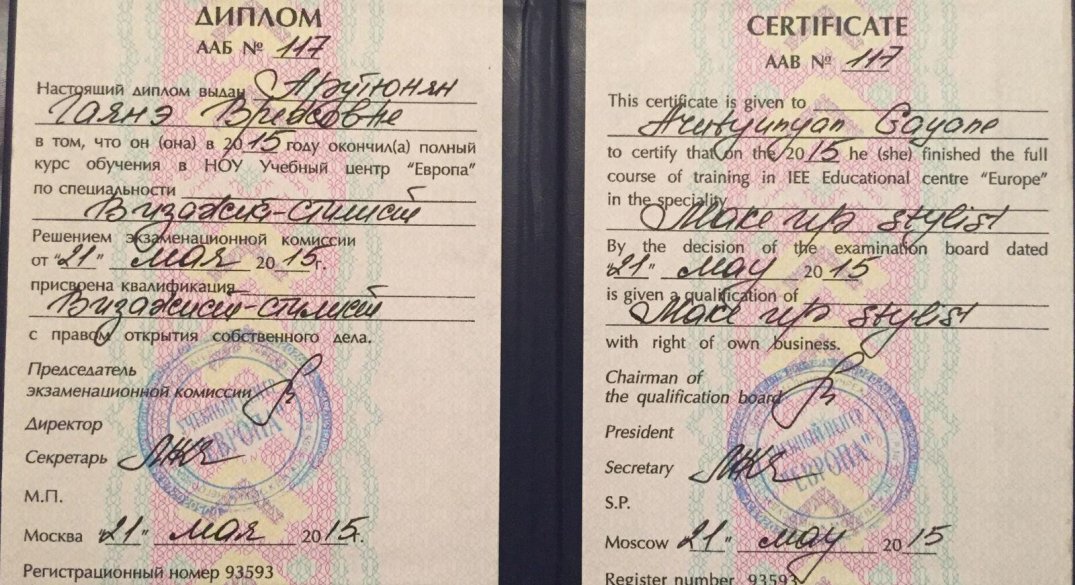 ДИПЛОМ
ААБ № 117
Настоящий диплом выдан Арутюнян
Гаянэ Врежовне
в том, что он (она) в 2015 году окончил(а) полный
курс обучения в НОУ Учебный центр "Европа"
по специальности
Визажист-стилист
Решением экзаменационной комиссии
от "21" мая 2015г.
присвоена квалификация
Визажист-стилист
с правом открытия собственного дела.
Председатель
экзаменационной комиссии
Директор
Секретарь
М.П.
Москва "21" мая 2015г.
Регистрационный номер 93593
УЧЕБНЫЙ ЦЕНТР
"ЕВРОПА"
CERTIFICATE
AAB № 117
This certificate is given to
Arutyunyan Gayane
to certify that on the 2015 he (she) finished the full
course of training in IEE Educational centre "Europe"
in the speciality
Make up stylist
By the decision of the examination board dated
"21" may 2015
is given a qualification of
Make up stylist
with right of own business.
Chairman of
the qualification board
President
Secretary
S.P.
Moscow "21" may 2015
Register number 93593
УЧЕБНЫЙ ЦЕНТР
"ЕВРОПА"